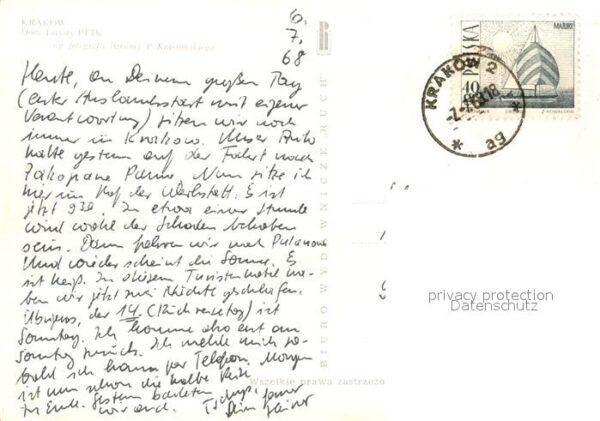 KRAKÓW
Dom Turysty PTTK
wg fotografii barwnej P. Krassowskiego
6.
7.
68
Heute, an Deinem großen Tag
(erster Auslandsstart mit eigener
Verantwortung) sitzen wir noch
immer in Krakau. Unser Auto
hatte gestern auf der Fahrt nach
Zakopane Panne. Nun sitze ich
hier im Hof der Werkstatt. Es ist
jetzt 930. In etwa einer Stunde
wird wohl der Schaden behoben
sein. Dann fahren wir nach
Und wieder scheint die Sonne. Es
ist heiß. In diesem Touristenhotel ha-
ben wir jetzt zwei Nächte geschlafen.
Übrigens, der 14. (Rückreisetag) ist
Sonntag. Ich komme also erst am
Sonntag zurück. Ich melde mich so-
bald ich kann per Telefon. Morgen
ist nun schon die halbe Reise
zu Ende. Gestern badeten
wir auch. Tschüß, immer
Dein
BIURO WYDAWNICZE „RUCH”
Wszelkie prawa zastrzeżo
POLSKA
MAZURY
40
KRAKÓW 2
ag
privacy protection
Datenschutz